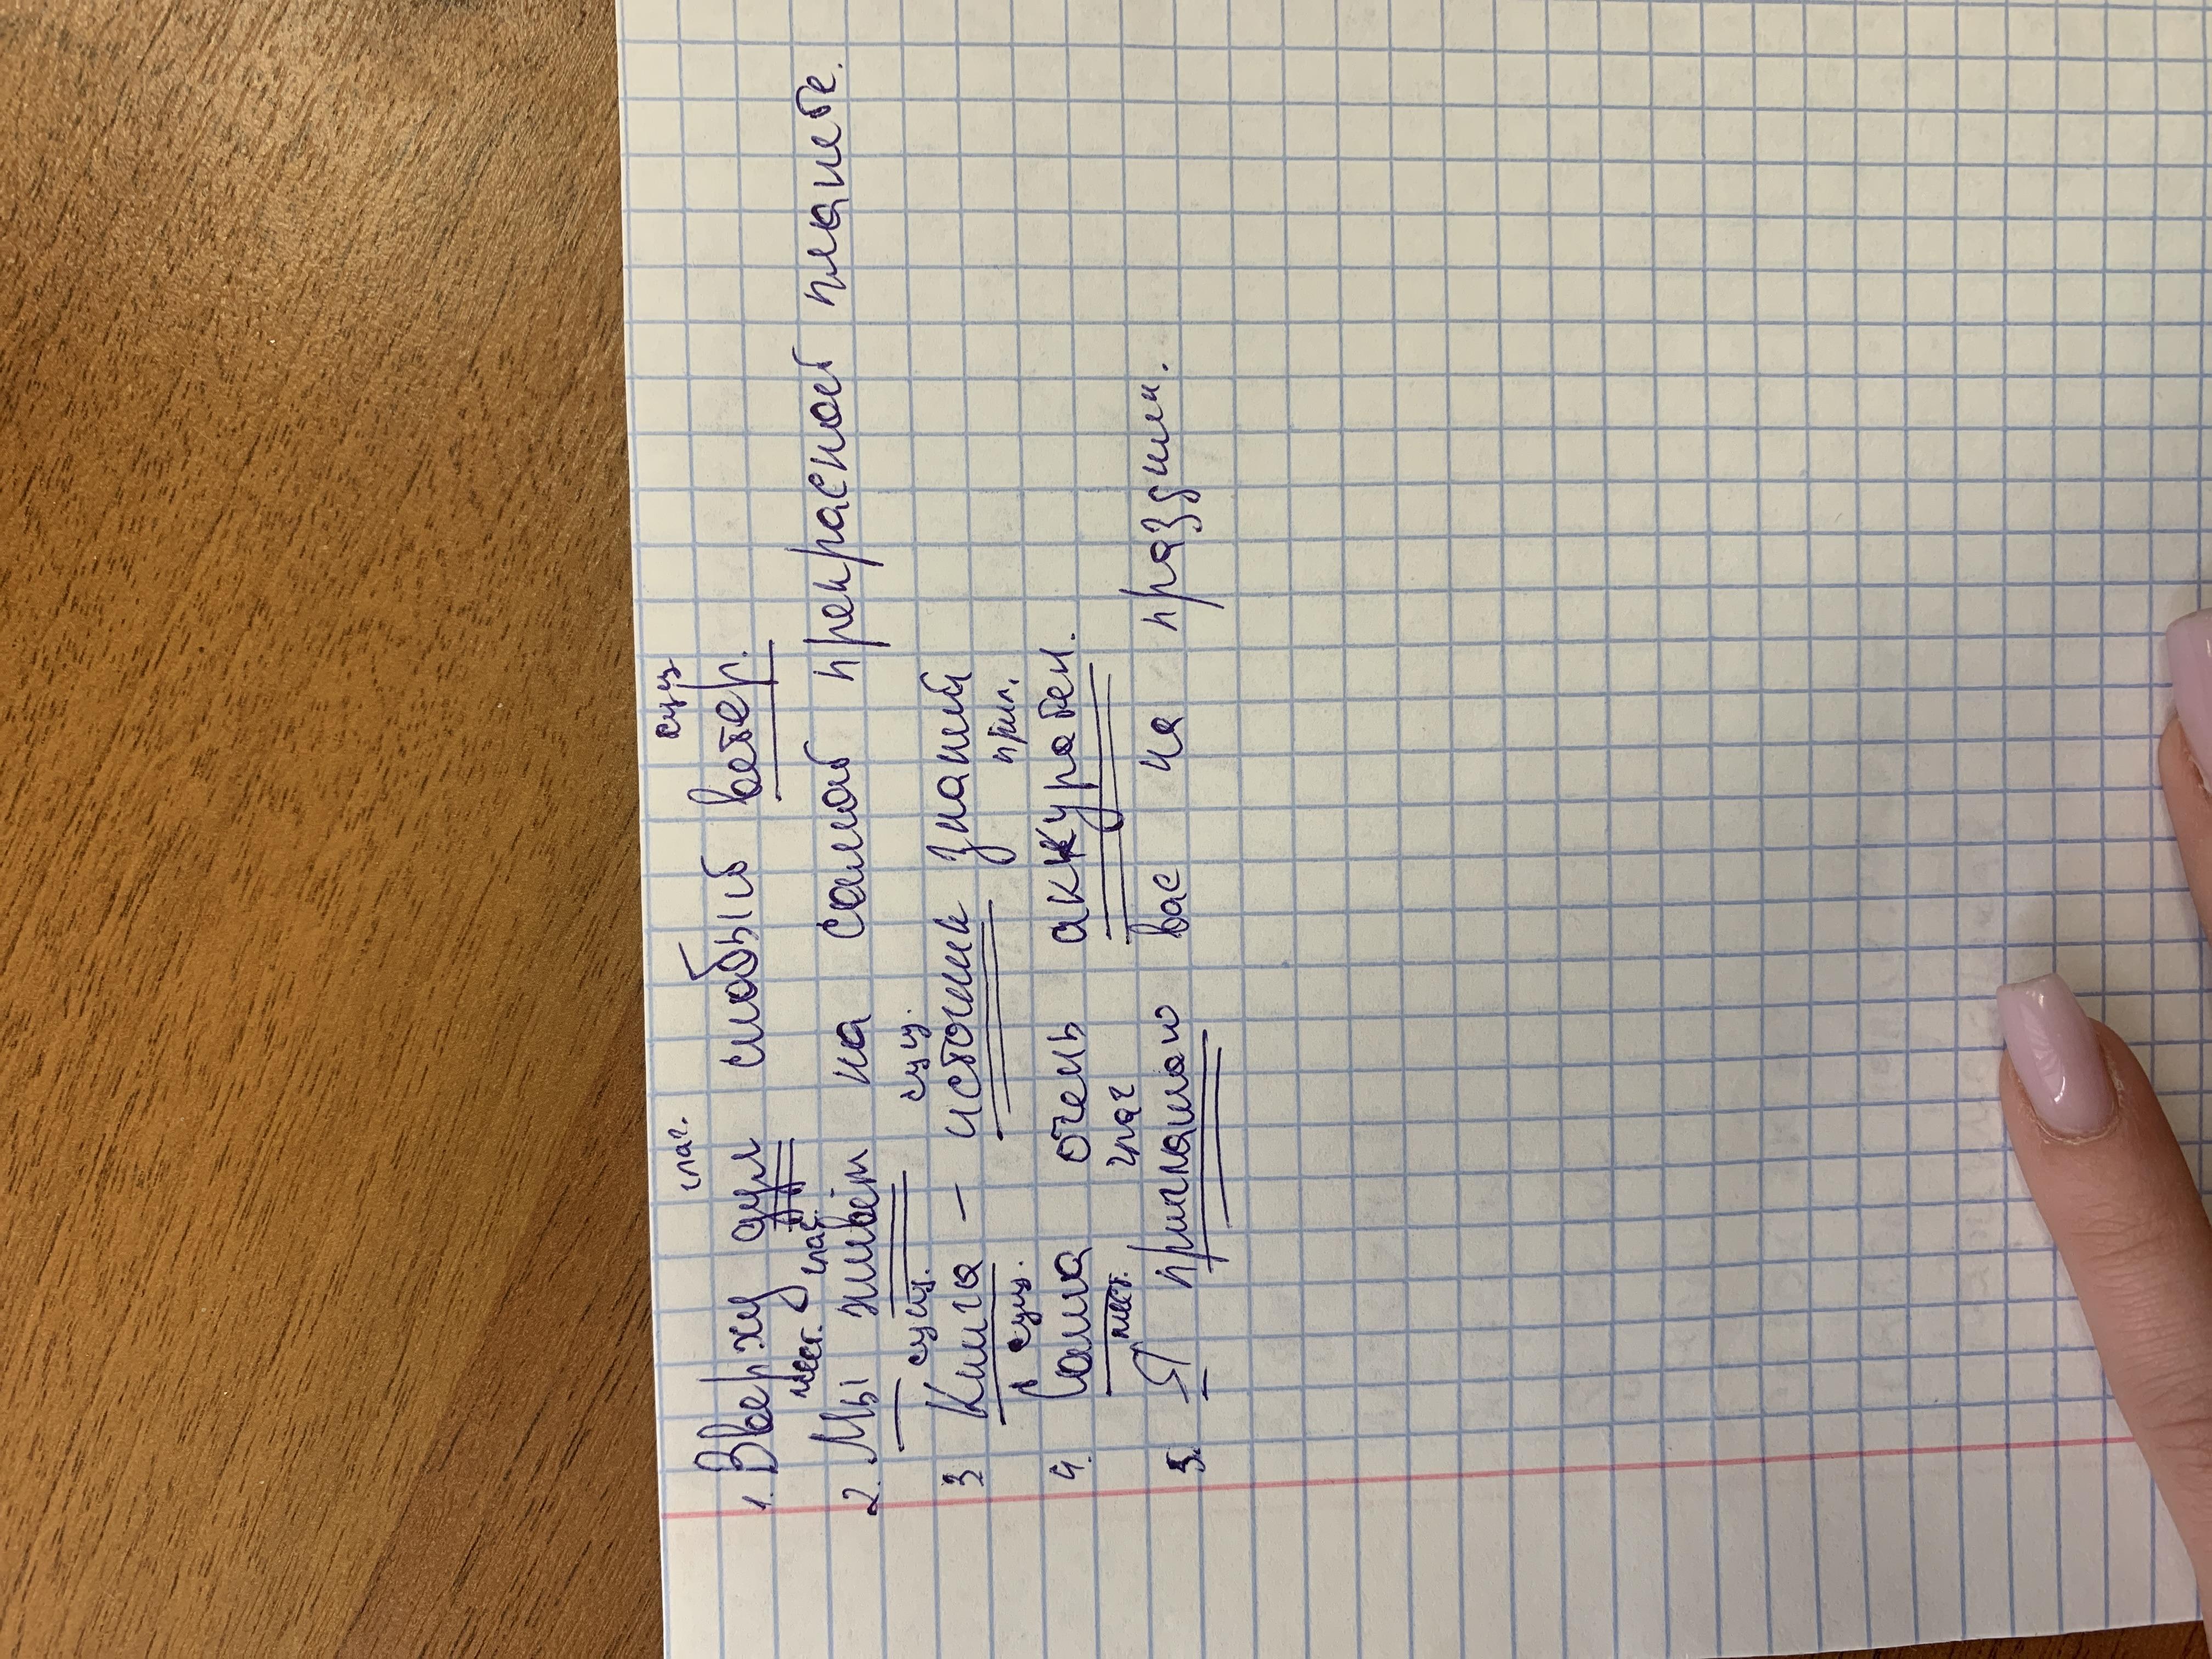 глаг. сущ
1. Вверху дул слабый ветер.
мест. глаг.
2. Мы живём на самой прекрасной планете.
сущ. сущ.
3 Книга – источник знаний
сущ. прил.
4. Саша очень аккуратен.
мест. глаг
5. Я приглашаю вас на праздник.